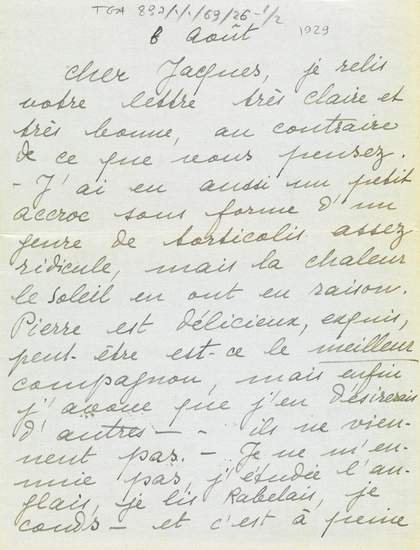 TGA 892/1/1/69/26-1/2
8 Août 1929
Cher Jacques, je relis
votre lettre très claire et
très bonne, au contraire
de ce que vous pensez.
- J'ai eu aussi un petit
accroc sous forme d'un
genre de torticolis assez
ridicule, mais la chaleur
le soleil en ont eu raison.
Pierre est délicieux, exquis,
peut-être est-ce le meilleur
compagnon, mais enfin
j'avoue que j'en désirerais
d'autres — - ils ne vien-
nent pas. - Je ne m'en-
nuie pas, j'étudie l'an-
glais, je lis Rabelais, je
couds - et c'est à peine